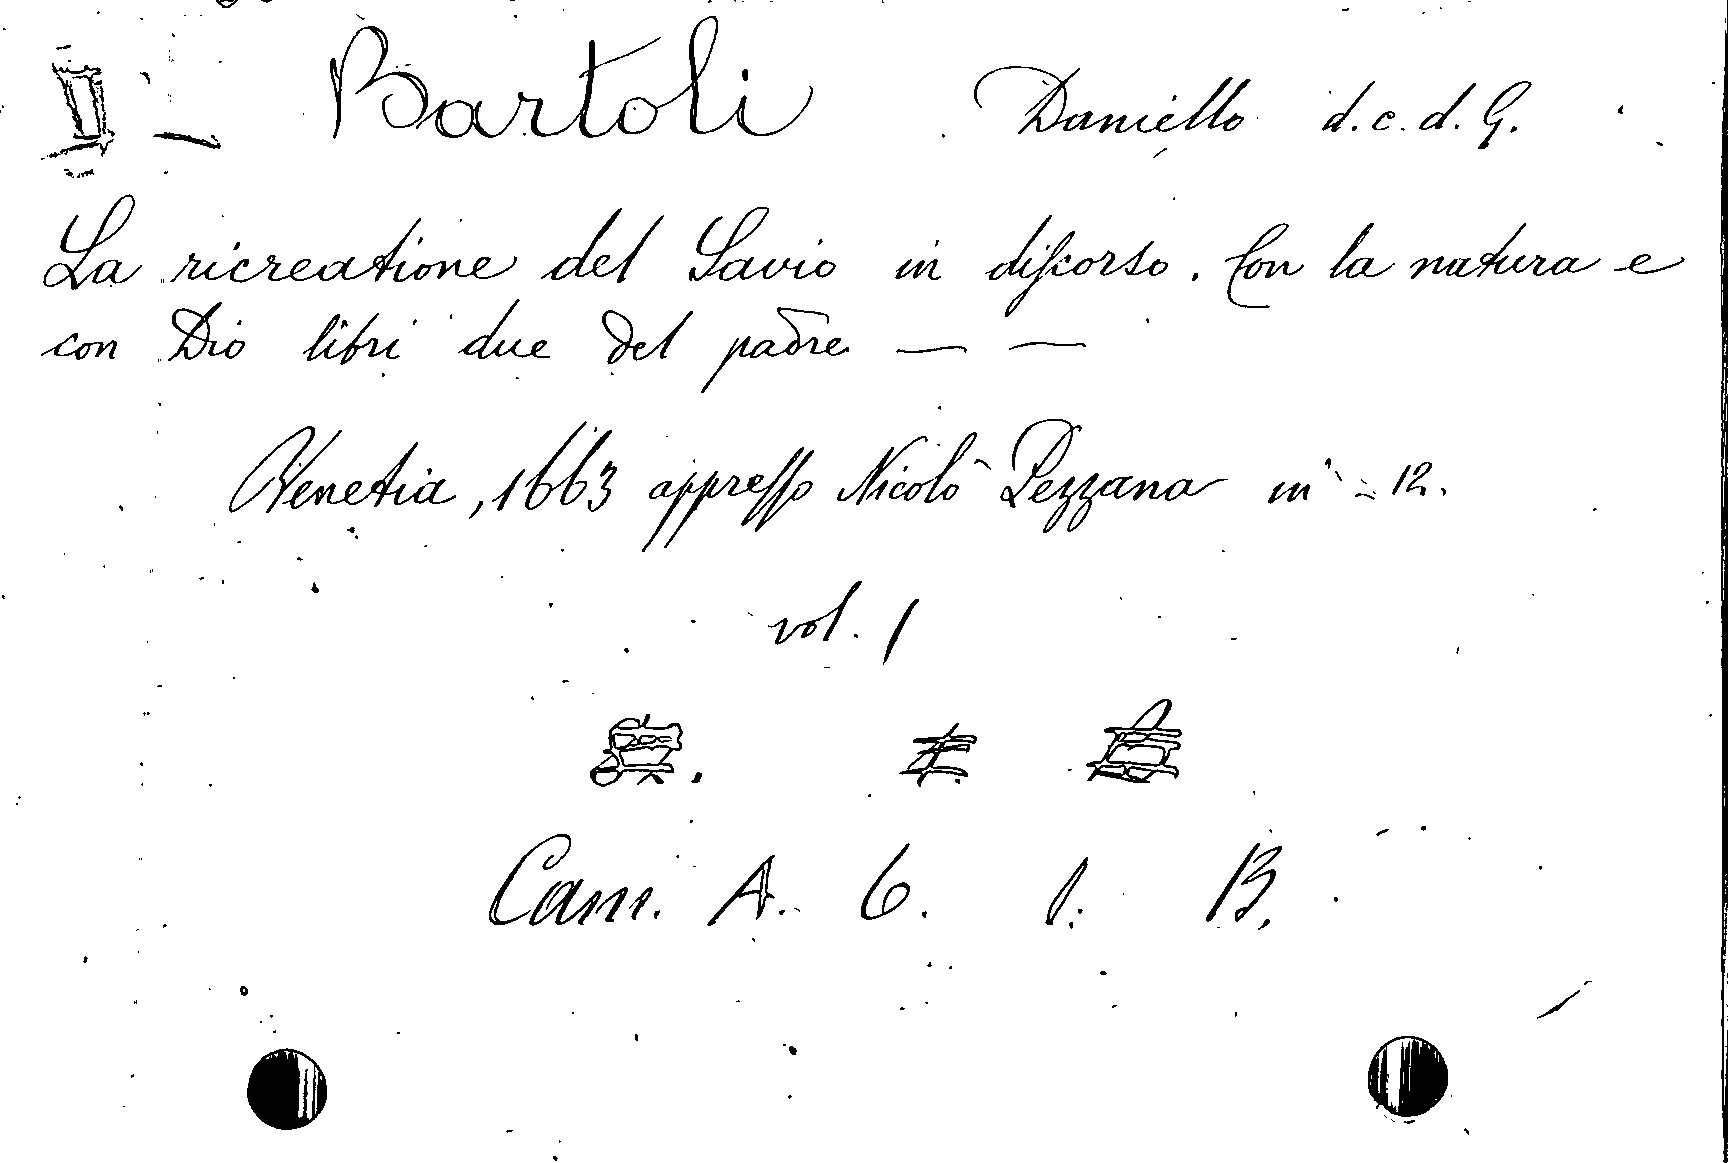 Bartoli Daniello d.c.d.G.
La ricreatione del Savio in discorso. Con la natura e
con Dio libri due del padre — —
Venetia, 1663 appresso Nicolò Pezzana in - 12.
vol. 1
Cam. A. 6. 1. B.